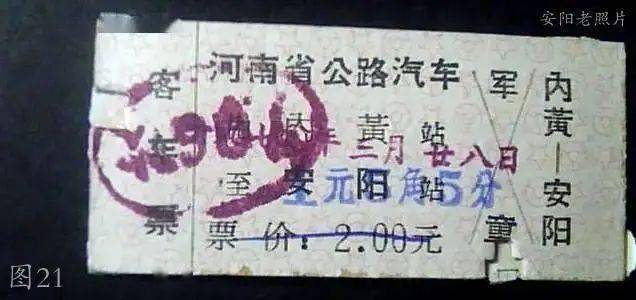 安阳老照片
河南省公路汽车
客车票
内黄站
二月廿八日
至安阳站
元 角5分
票价：2.00元
军童
内黄—安阳
图21